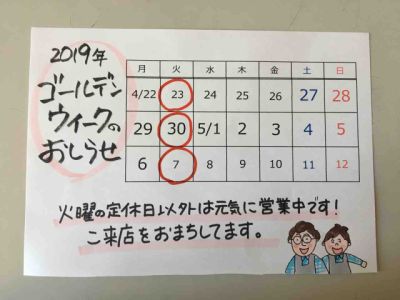 2019年
ゴールデン
ウィークの
おしらせ
月 火 水 木 金 土 日
4/22 23 24 25 26 27 28
29 30 5/1 2 3 4 5
6 7 8 9 10 11 12
火曜の定休日以外は元気に営業中です!
ご来店をおまちしてます。